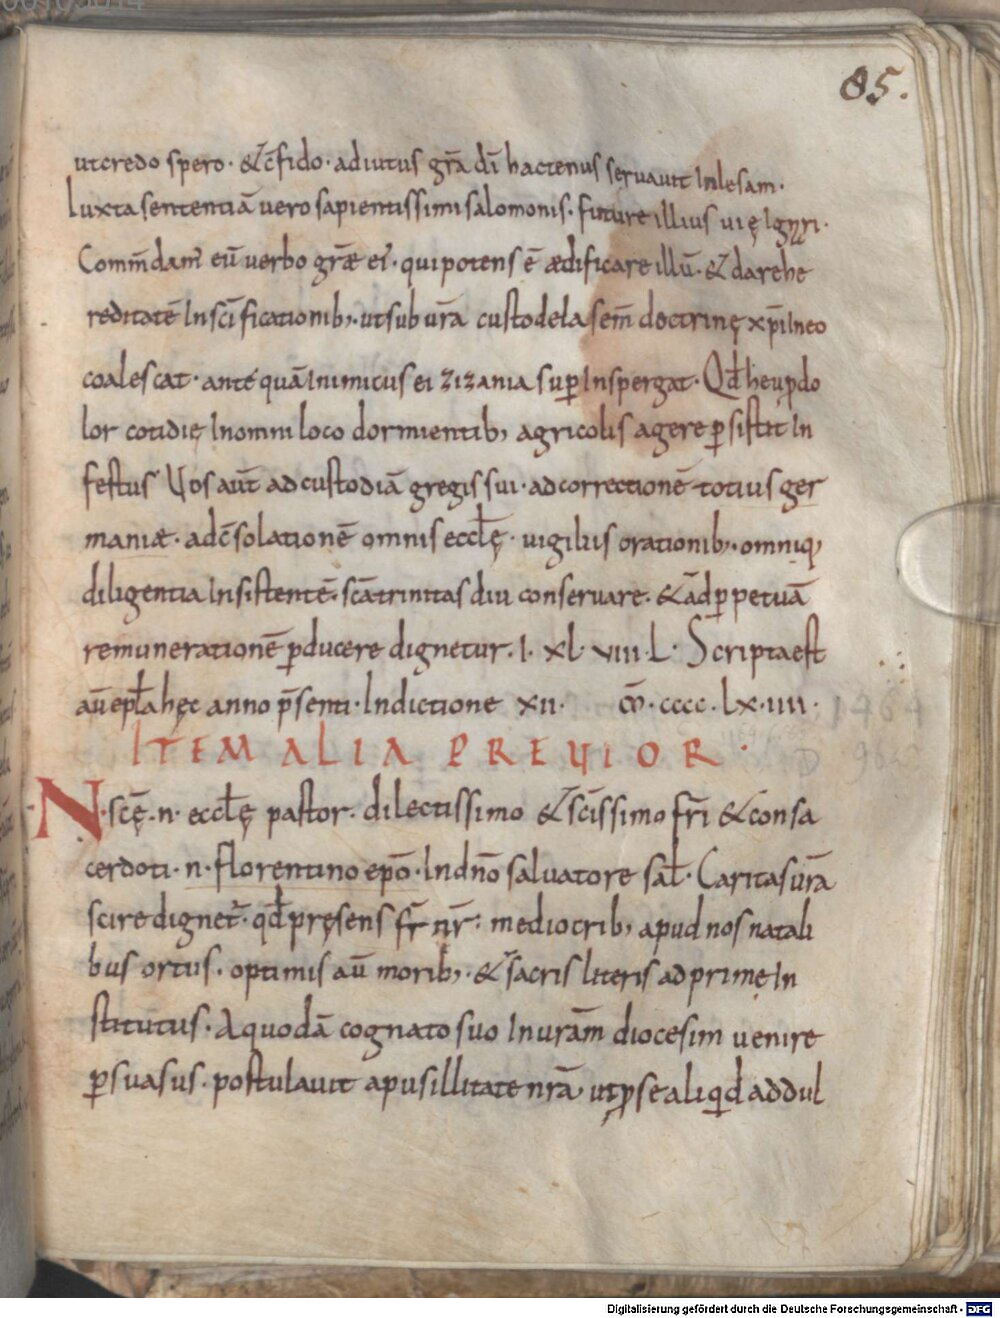 85.
utcredo spero · & c̄fido · adiutus gr̄a dī hactenus seruauit Inlesam·
Iuxta sententiā uero sapientissimi salomonis · future illius uię Ignari·
Comm̄dam̄ eū uerbo gr̄æ ei · qui potens ē ædificare illū· & dare he
reditatē In sc̄ificationib; · ut sub ur̄a custodela sem̄ doctrinę xp̄i In eo
coalescat · ante quā Inimicus ei zizania sup̄ Inspergat · Qd̄ heu p̄ do
lor cotidię In omni loco dormientib; agricolis agere p̄sistit In
festus Uos aūt ad custodiā gregis sui · ad correctionē totius ger
maniæ · ad c̄solationē omnis eccl̄ę · uigiliis orationib; · omniq;
diligentia Insistentē · sc̄a trinitas diu conseruare · & ad p̄petuā
remunerationē p̄ducere dignetur · I · xl · viii · L · Scripta est
aū epl̄a hęc anno p̄senti · Indictione xii · ꝏ · cccc · lx · iiii ·
1464
ITEM ALIA PREUIOR ·
N · sc̄ę · n · eccl̄ę pastor · dilectissimo & sc̄issimo fr̄i & consa
cerdoti · n · florentino ep̄o · In dn̄o saluatore sal̄ · Caritas ur̄a
scire dignet̄ · qd̄ pręsens fr̄ nr̄ · mediocrib; apud nos natali
bus ortus · optimis aū morib; · & sacris literis ad primę In
stitutus · A quodā cognato suo In uram̄ diocesim uenire
p̄suasus · postulauit a pusillitate nr̄a · ut p̄ se aliqd̄ ad dul
Digitalisierung gefördert durch die Deutsche Forschungsgemeinschaft - DFG